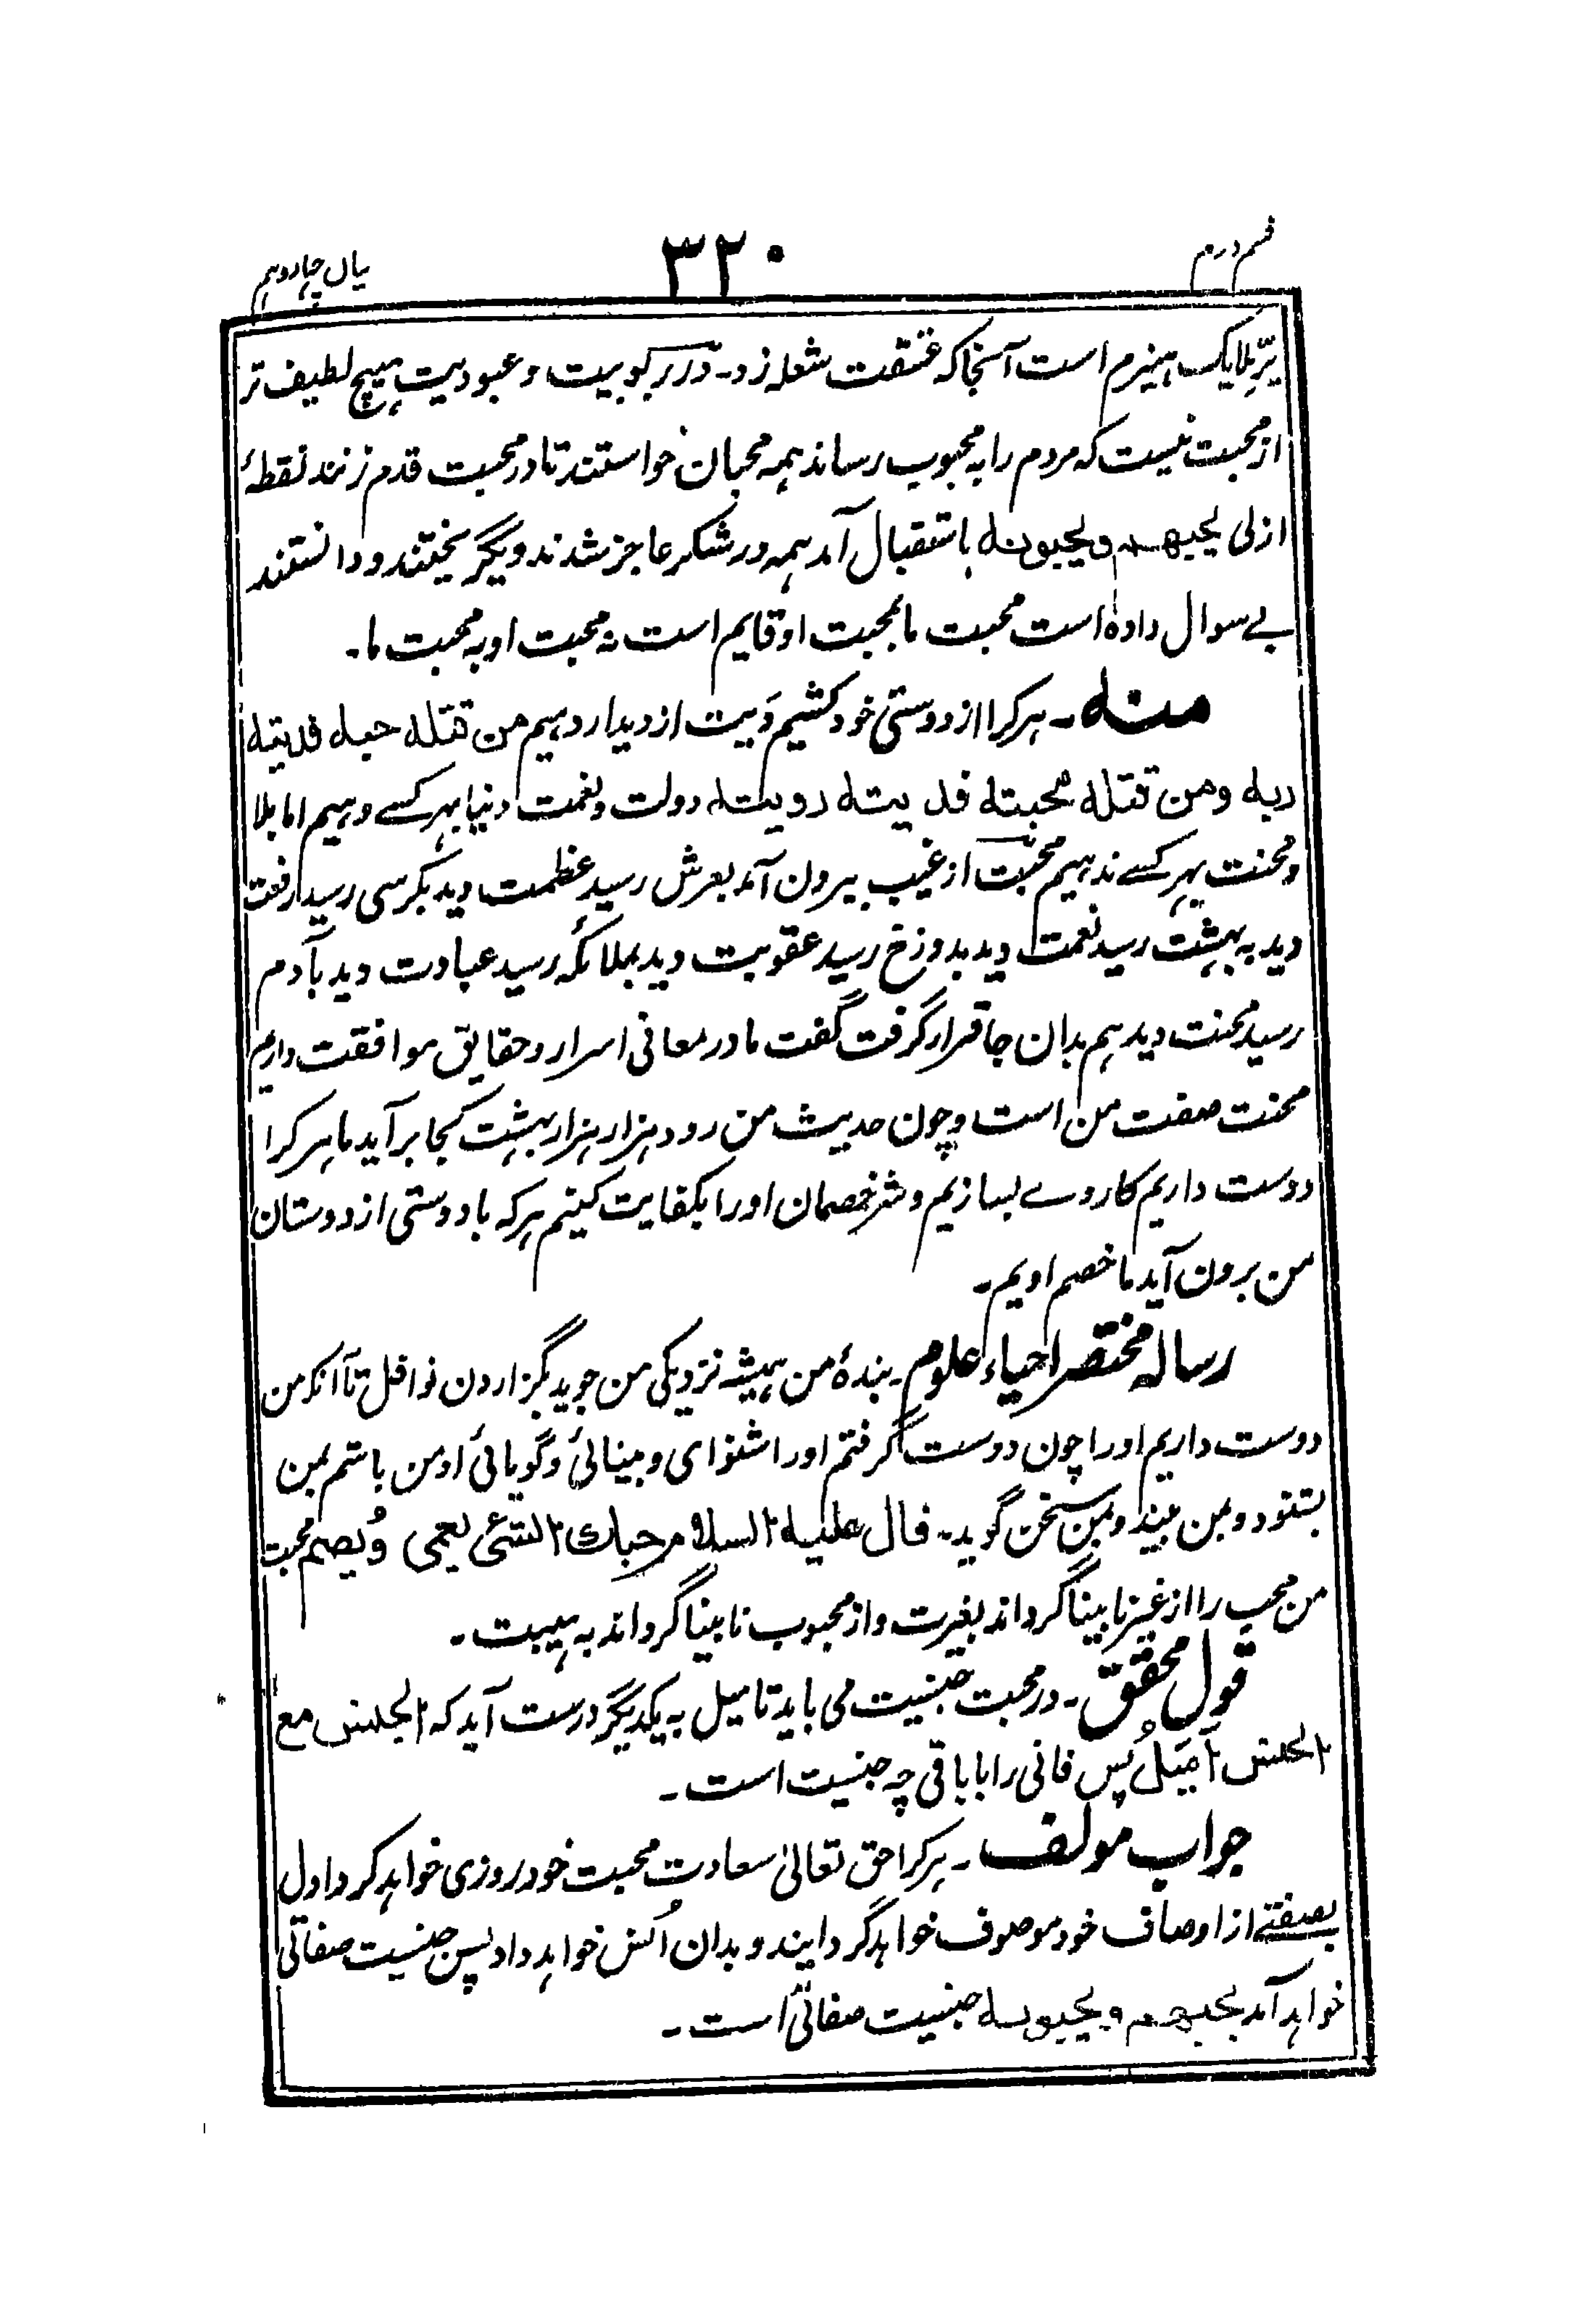 قسم دوم
۳۲۰
بیان چهاردهم
پرّ ملایک هیزم است آنجا که عشقت شعله زد ـ در ربوبیت و عبودیت هیچ لطیف تر
از محبت نیست که مردم را به محبوب رساند همه محبان خواستند تا در محبت قدم زنند نقطهٔ
ازلی یحبهم و یحبونه باستقبال آمد همه در شکر عاجز شدند و بگریختند و دانستند
بے سوال داده است محبت ما بمحبت او قایم است نه محبت او به محبت ما ـ
منه ـ هر کرا از دوستی خود کشیم دیت از دیدار دهیم من قتله حبه فدیته
ربه ومن قتله محبته فدیته رویته دولت و نعمت دنیا بهر کسے دهیم اما بلا
و محنت بهر کسے ندهیم محبت از غیب بیرون آمد بعرش رسید عظمت دید بکرسی رسید رفعت
دید به بهشت رسید نعمت دید بدوزخ رسید عقوبت دید بملائکه رسید عبادت دید بآدم
رسید محنت دید هم بدان جا قرار گرفت گفت ما در معانی اسرار و حقایق موافقت داریم
محنت صفت من است و چون حدیث من رود هزار هزار بهشت کجا برآید ما هر کرا
دوست داریم کار وے بسازیم و شر خصمان او را بکفایت کنیم هر که با دوستی از دوستان
من برون آید ما خصم اویم ـ
رساله مختصر احیاء علوم ـ بندهٔ من همیشه نزدیکی من جوید بگزاردن نوافل تا آنکه من
دوست داریم او را چون دوست گرفتم او را شنوای و بینائی و گویائی او من باشم بمن
بشنود و بمن بیند و بمن سخن گوید ـ قال علیه السلام حبک الشئ یعمی و یصم محبت
من محب را از غیر نابینا گرداند بغیرت و از محبوب نابینا گرداند به هیبت ـ
قول محقق ـ در محبت جنسیت می باید تا میل به یکدیگر درست آید که الجنس مع
الجنس امیل پس فانی را با باقی چه جنسیت است ـ
جواب مولف ـ هر کرا حق تعالی سعادت محبت خود روزی خواهد کرد اول
بصفتے از اوصاف خود موصوف خواهد گردانید و بدان اُنس خواهد داد پس جنسیت صفاتی
خواهد آمد یحبهم و یحبونه جنسیت صفاتی است ـ